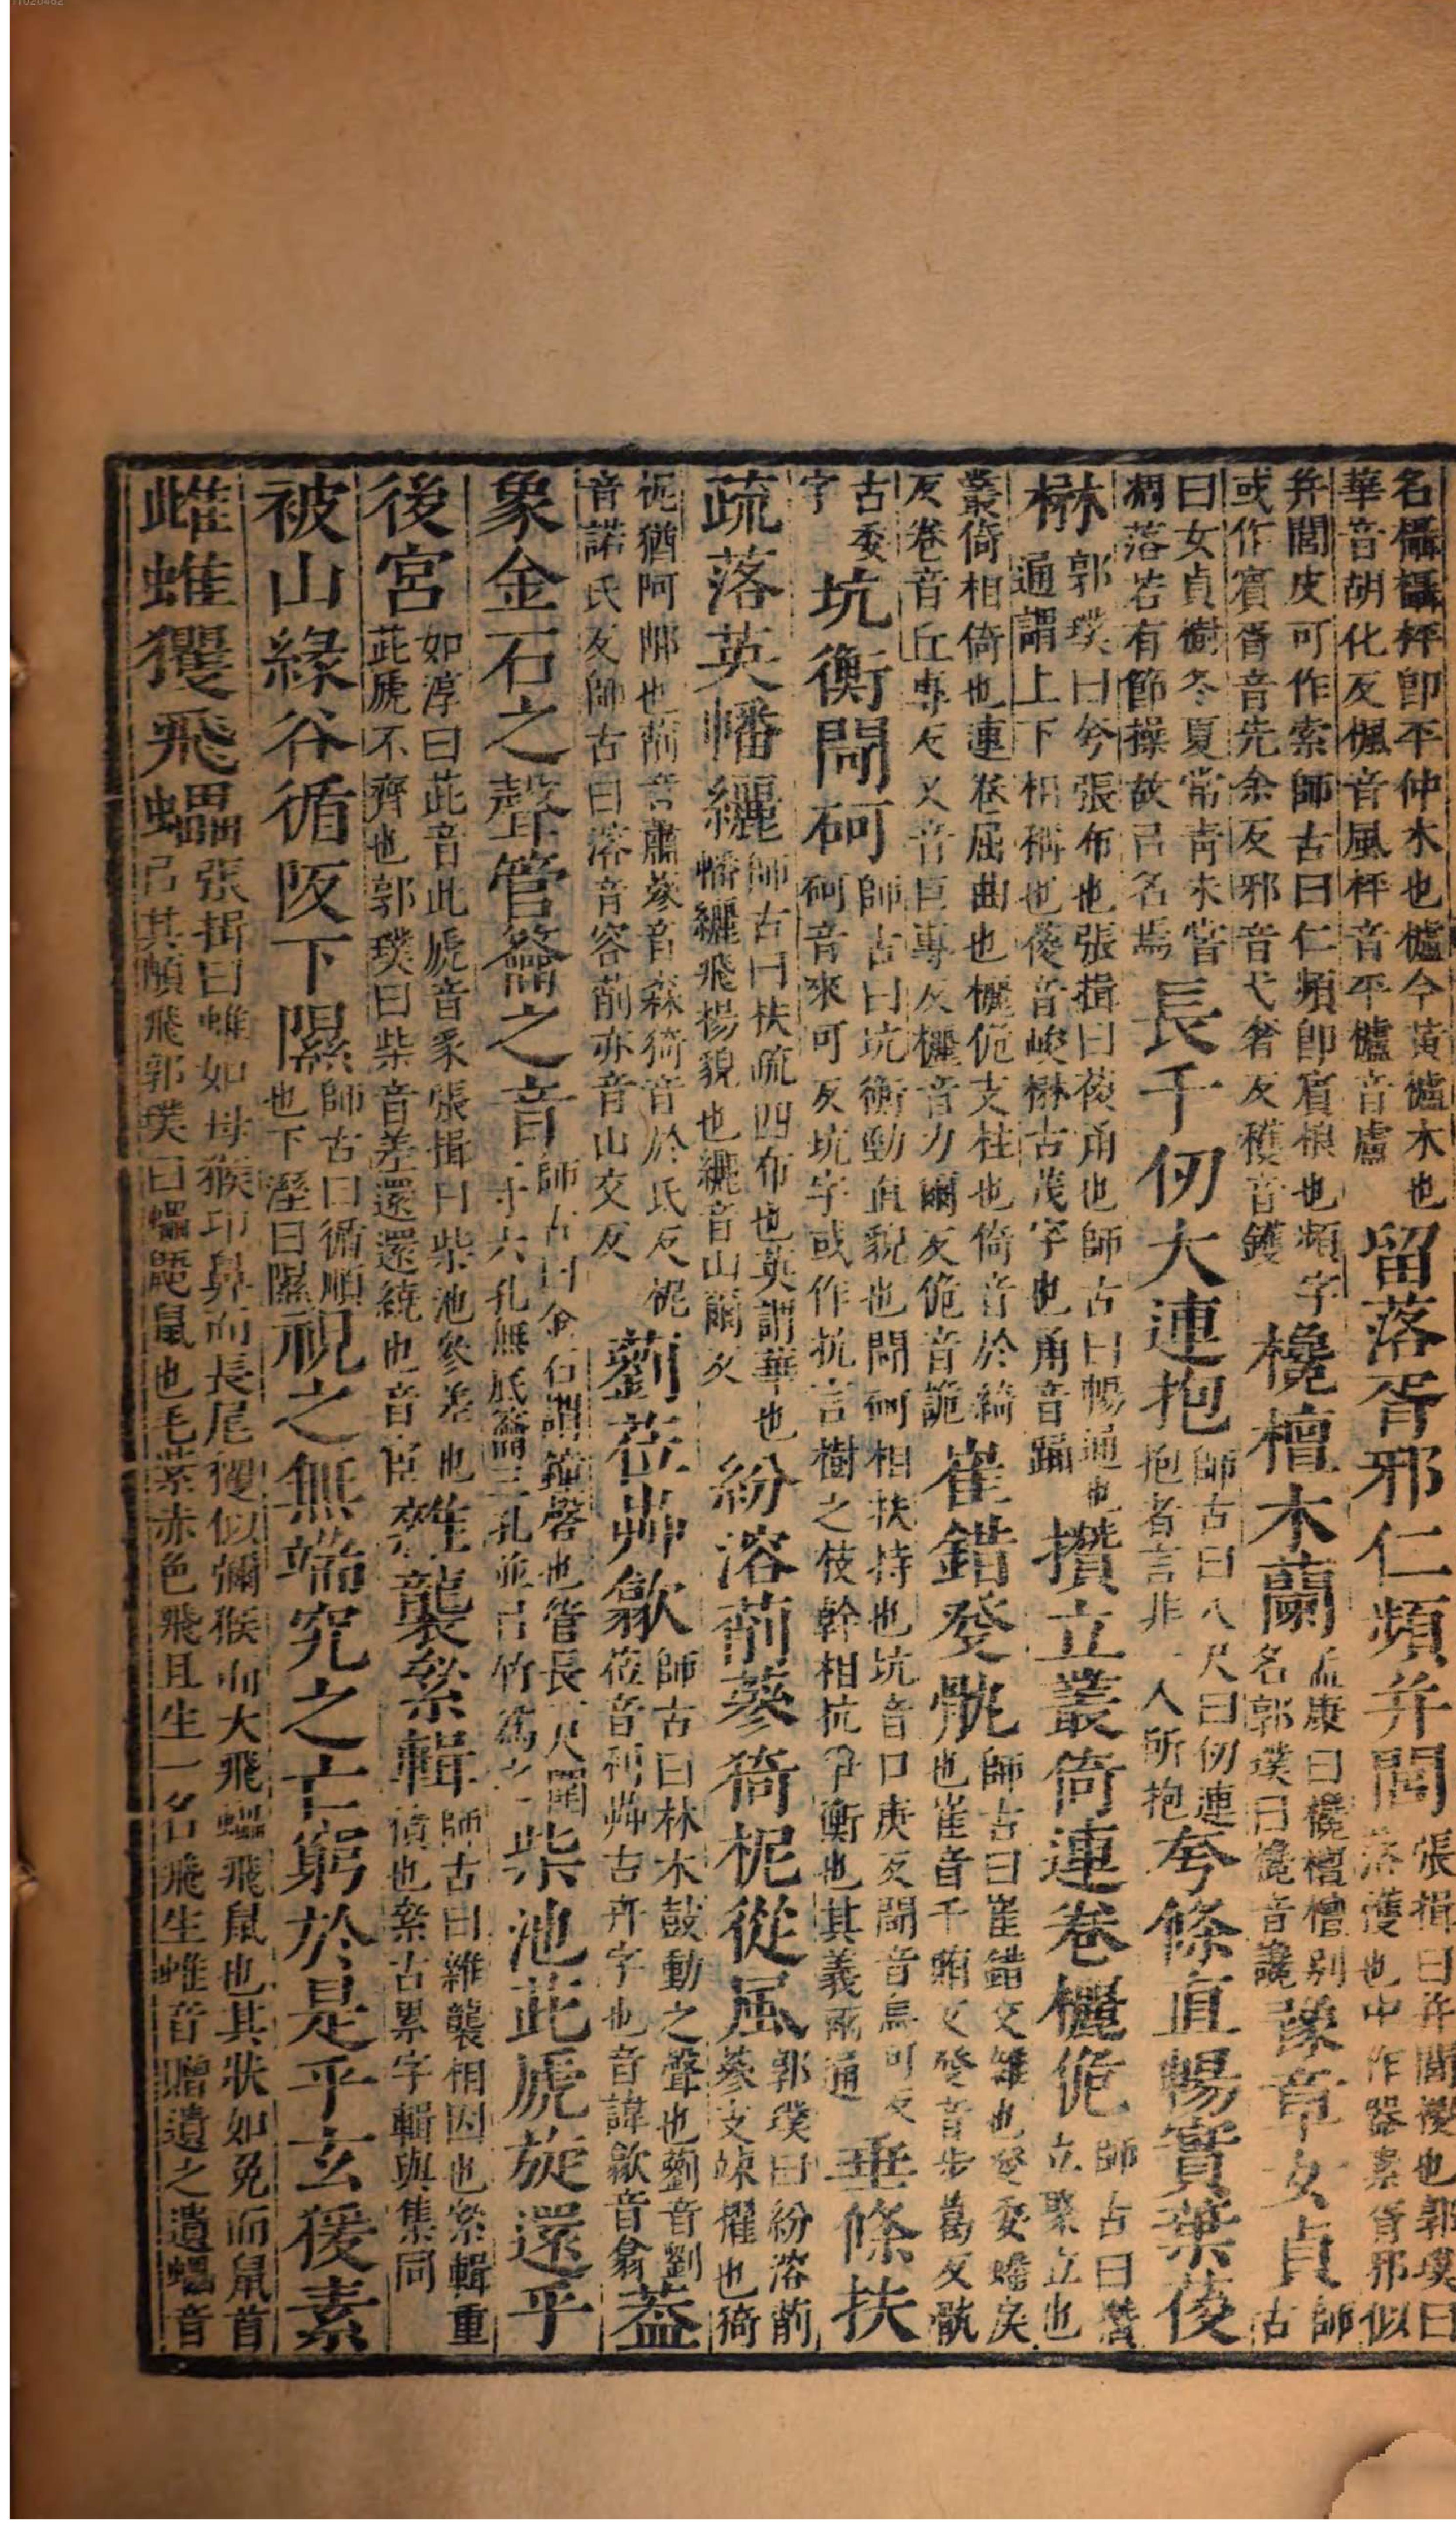 名欇欇枰卽平仲木也櫨今黃櫨木也
華音胡化反楓音風枰音平櫨音盧
留落胥邪仁頻并閭
張揖曰并閭㯶也郭璞曰
落穫也中作器素胥邪似
并閭皮可作索師古曰仁頻卽賓桹也頻字
或作賓胥音先余反邪音弋奢反穫音鑊
欃檀木蘭
孟康曰欃檀檀别
名郭璞曰欃音讒
豫章女貞
師古
曰女貞樹冬夏常青未嘗
凋落若有節操故㠯名焉
長千仞大連抱
師古曰八尺曰仞連
抱者言非一人所抱
夸條直暢實葉葰
楙
郭璞曰夸張布也張揖曰葰甬也師古曰暢通也
通謂上下相稱也葰音峻楙古茂字也甬音踊
攢立叢倚連卷欐佹
師古曰攢
立聚立也
叢倚相倚也連卷屈曲也欐佹支柱也倚音於綺
反卷音丘專反又音巨專反欐音力爾反佹音詭
崔錯癹骫
師古曰崔錯交雜也癹委蟠戾
也崔音千賄反癹音步葛反骫
古委
字
坑衡閜砢
師古曰坑衡勁直貌也閜砢相扶持也坑音口庚反閜音烏可反
砢音來可反坑字或作抗言樹之枝幹相抗爭衡也其義兩通
垂條扶
疏落英幡纚
師古曰扶疏四布也英謂華也
幡纚飛揚貌也纚音山爾反
紛溶萷蔘猗柅從風
郭璞曰紛溶萷
蔘支竦擢也猗
柅猶阿那也萷音蕭蔘音森猗音於氏反柅
音諾氏反師古曰溶音容萷亦音山交反
藰莅芔歙
師古曰林木鼓動之聲也藰音劉
莅音利芔古卉字也音諱歙音翕
蓋
象金石之聲管籥之音
師古曰金石謂鐘磬也管長一尺圍
一寸六孔無底籥三孔並㠯竹爲之
柴池茈虒旋還乎
後宮
如淳曰茈音此虒音豸張揖曰柴池參差也
茈虒不齊也郭璞曰柴音差還還繞也音宦
雜襲絫輯
師古曰雜襲相因也絫輯重
積也絫古累字輯與集同
被山緣谷循阪下隰
師古曰循順
也下溼曰隰
視之無端究之亡窮於是乎玄猨素
雌蜼玃飛蠝
張揖曰蜼如母猴卬鼻而長尾玃似獼猴而大飛蠝飛鼠也其狀如兔而鼠首
㠯其䫇飛郭璞曰蠝鼯鼠也毛紫赤色飛且生一名飛生蜼音贈遺之遺蠝音